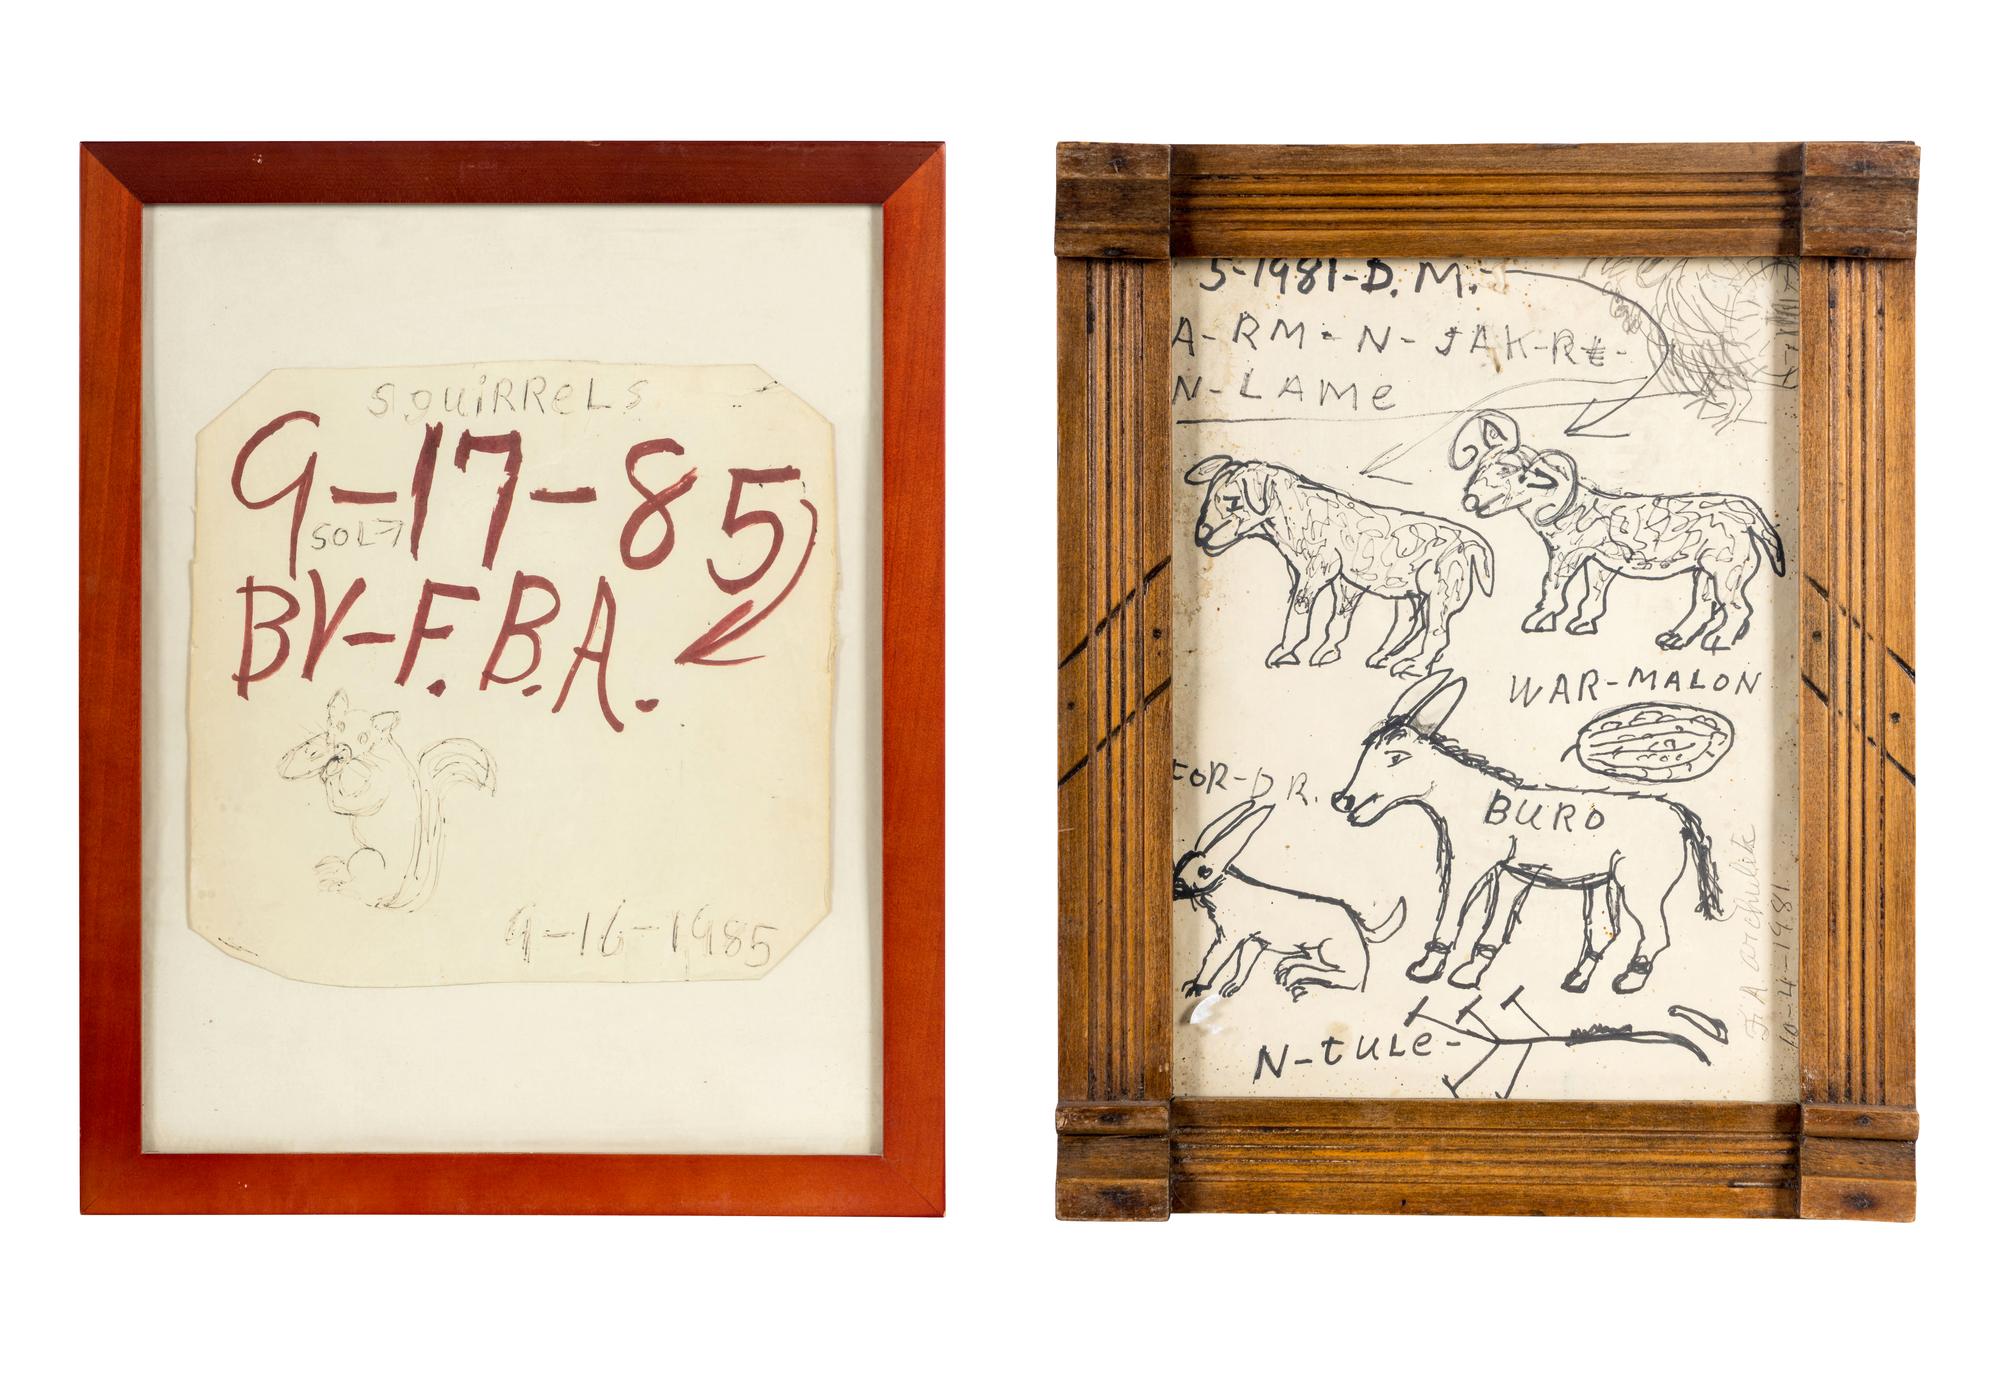 SquiRReLS
9-17-85
SOL
BY-F.B.A.
9-16-1985
5-1981-D.M.
A-RM-N-JAK-RE-
N-LAMe
WAR-MALON
FOR-DR.
BURO
F. A archuleta
10-4-1981
N-tuLe-